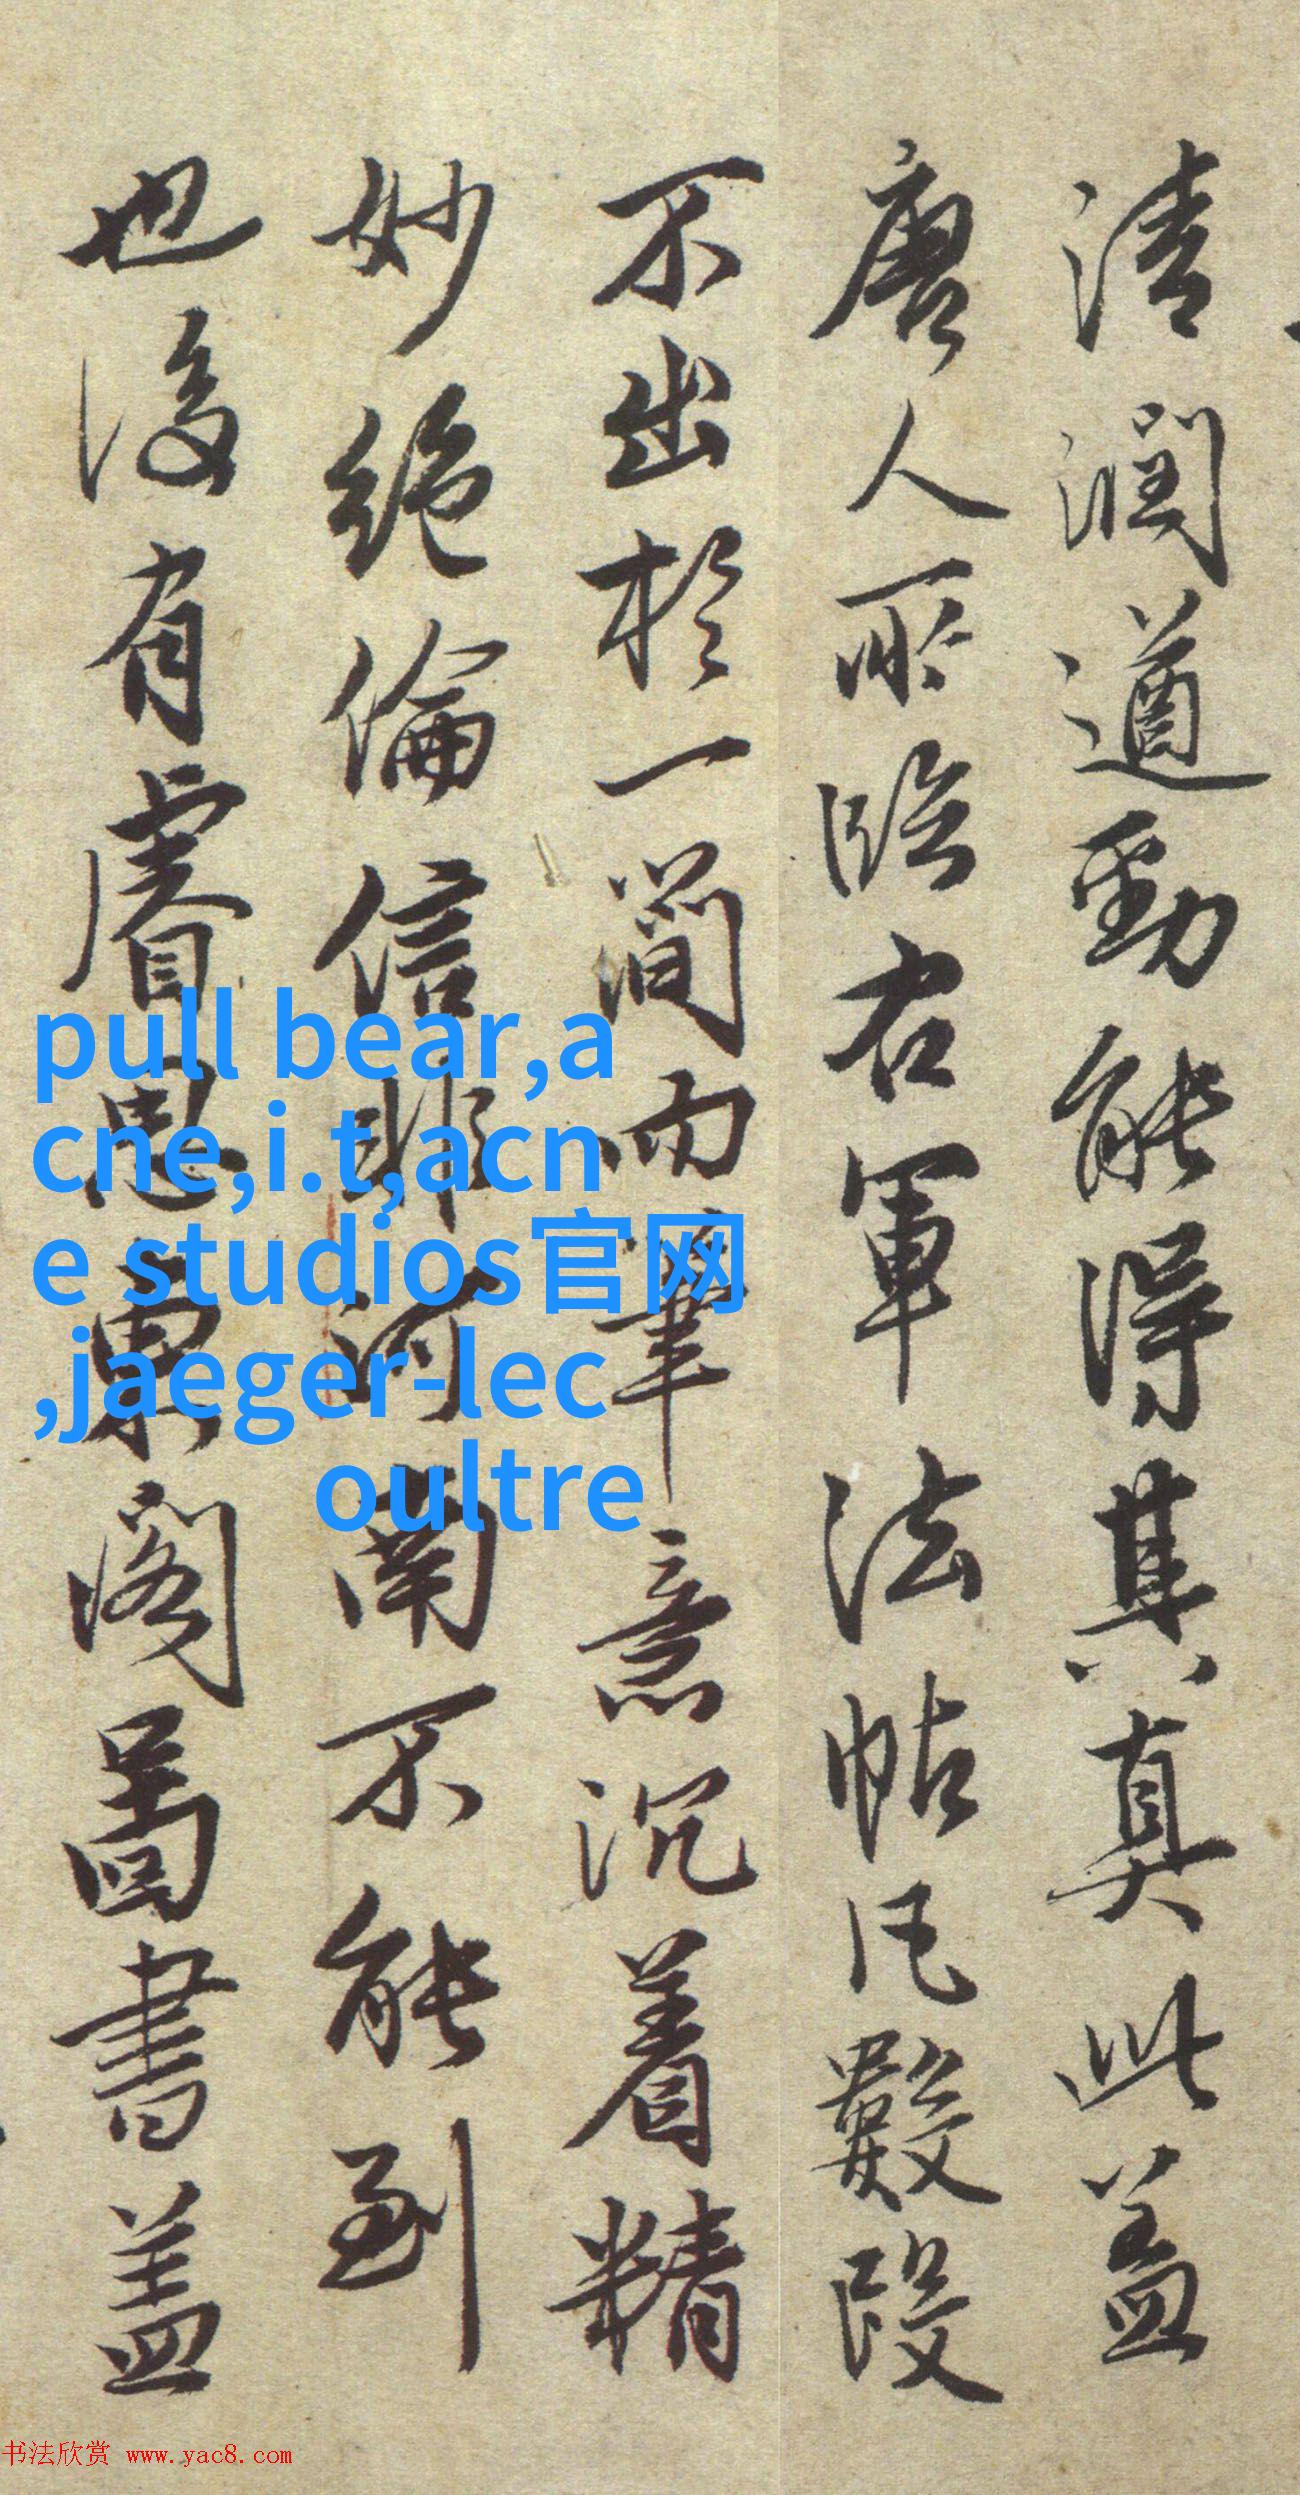 清潤遒勁能得其真此蓋
唐人所臨右軍法帖凡數段
不出於一簡而筆意沉着精
妙絶倫信非河南不能到
也後有睿思東閣圖書蓋
pull bear,a
cne,i.t,acn
e studios官网
,jaeger-lec
oultre
书法欣赏 www.yac8.com